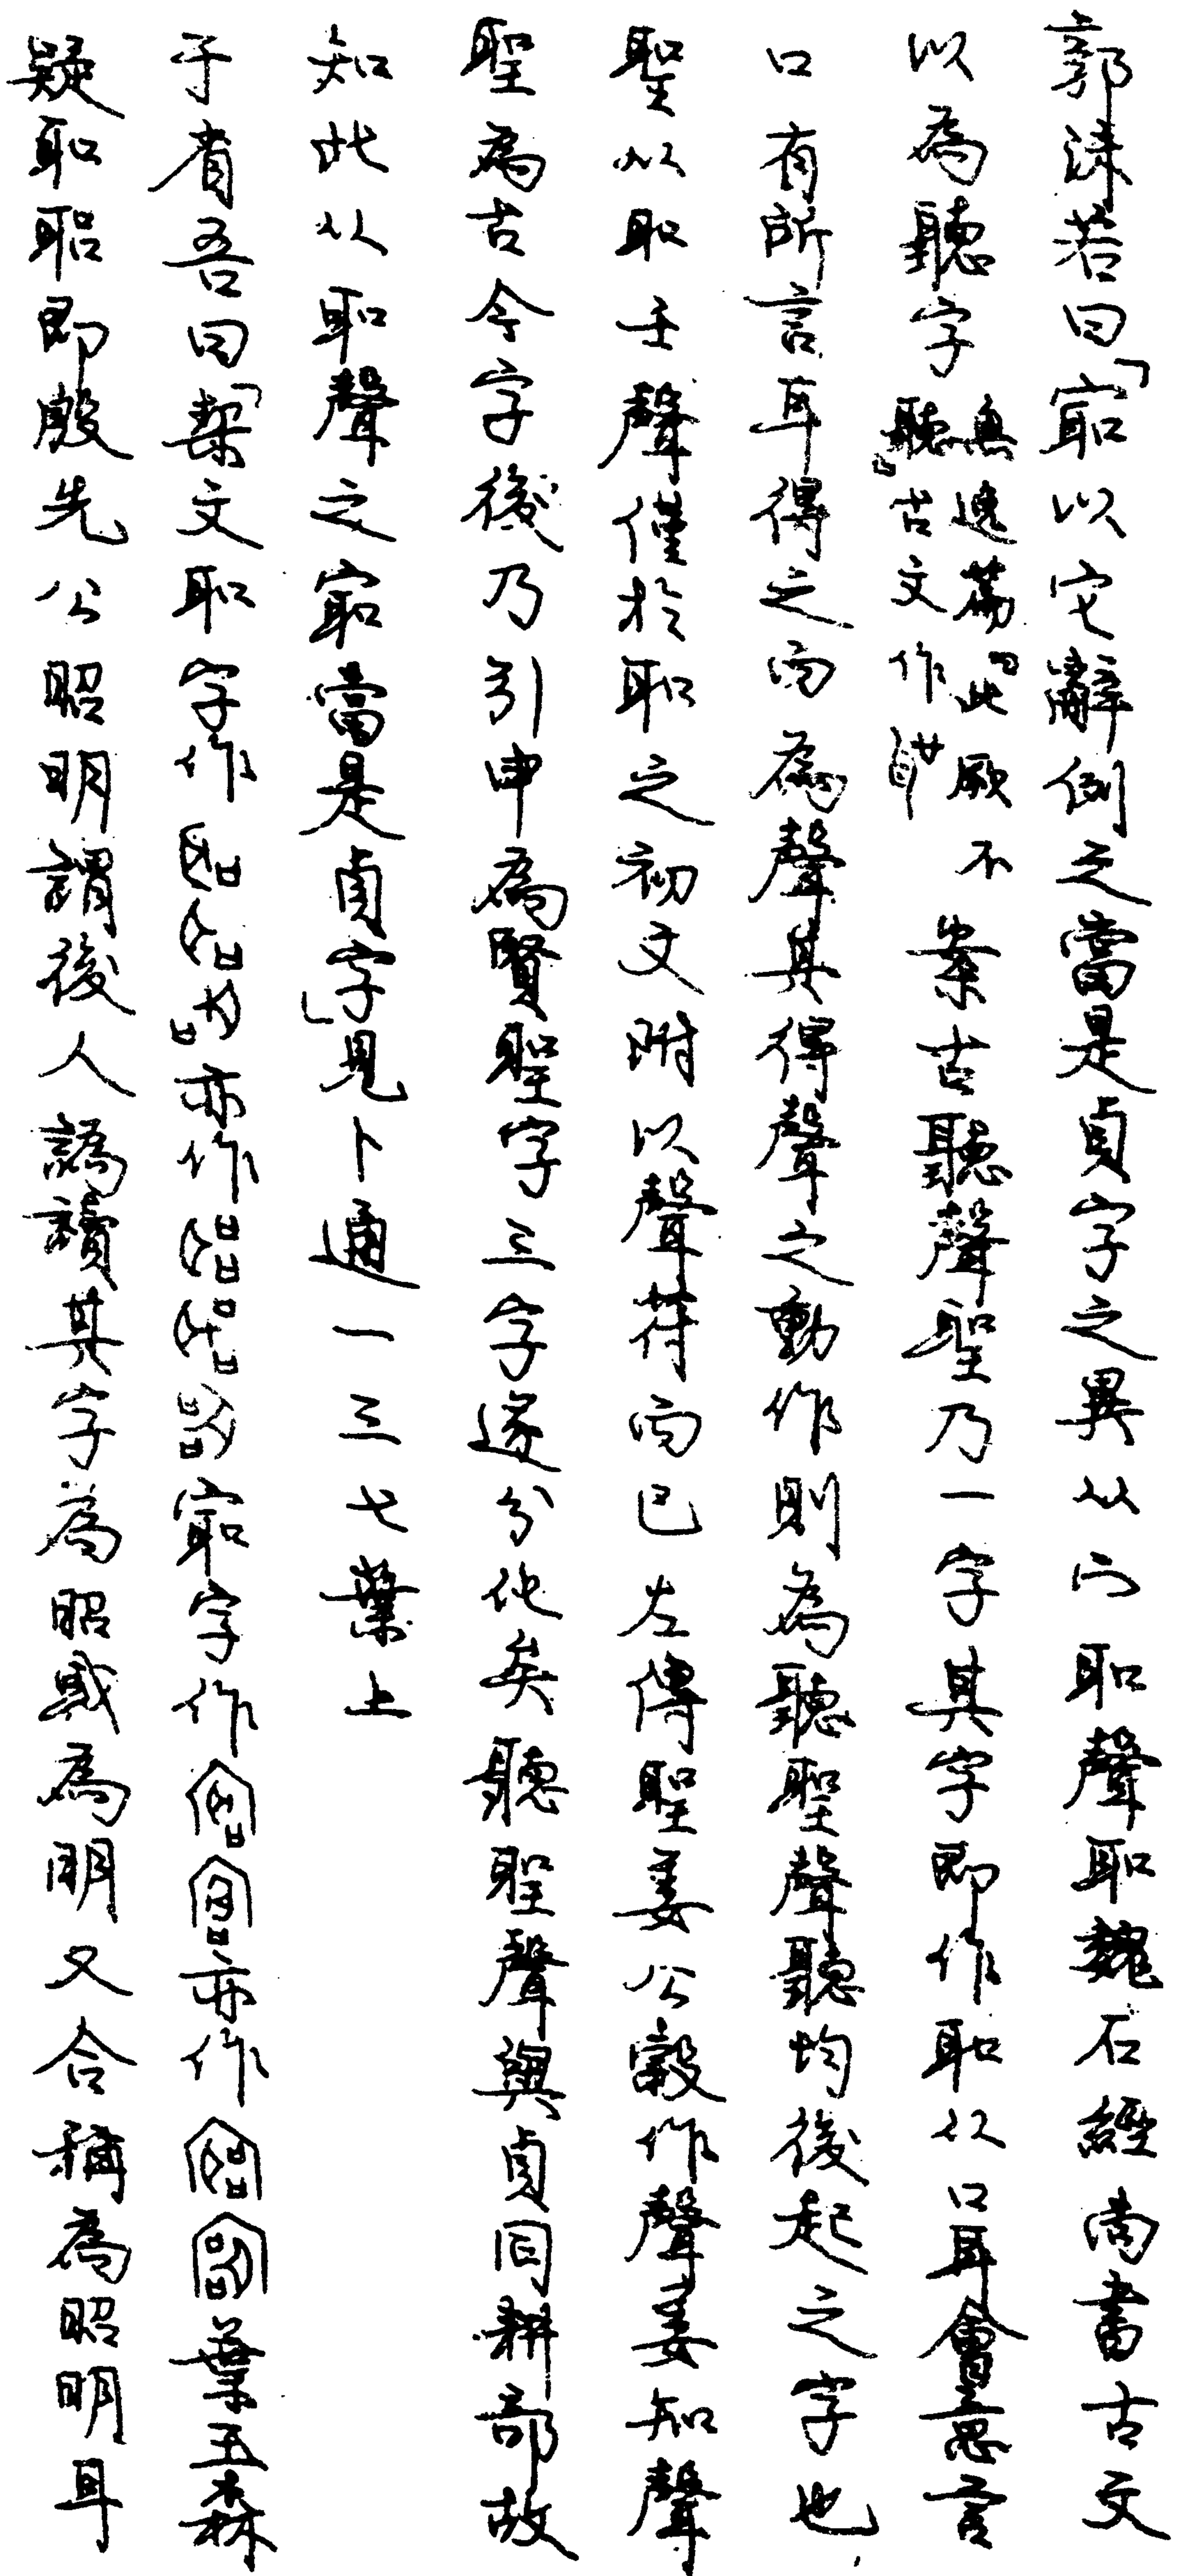 郭沫若曰「𡧫以它辭例之當是貞字之異从宀耴聲耴魏石經尚書古文
以為聽字無逸篇「此厥不聽」古文作 案古聽聲聖乃一字其字即作耴从口耳會意言
口有所言耳得之而為聲其得聲之動作則為聽聖聲聽均後起之字也
聖从耴壬聲僅於耴之初文附以聲符而已左傳聖姜公穀作聲姜知聲
聖為古今字後乃引申為賢聖字三字遂分化矣聽聖聲與貞同耕部故
知此从耴聲之𡧫當是貞字」見卜通一三七葉上
于省吾曰「栔文耴字作 亦作 字作 亦作 葉玉森
疑耴耶即殷先公昭明謂後人譌讀其字為昭或為明又合稱為昭明耳